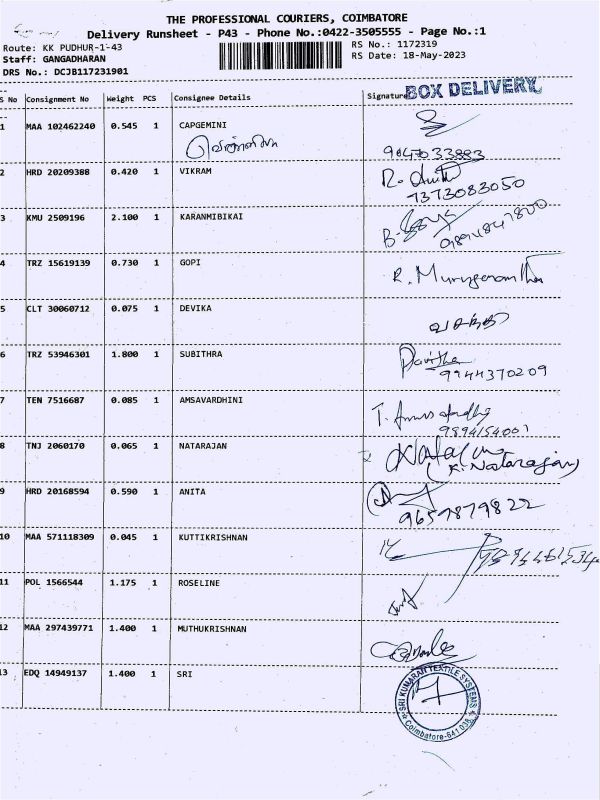 THE PROFESSIONAL COURIERS, COIMBATORE
Delivery Runsheet - P43 - Phone No.:0422-3505555 - Page No.:1
Route: KK PUDHUR-1-43
RS No.: 1172319
Staff: GANGADHARAN
RS Date: 18-May-2023
DRS No.: DCJB117231901
S No Consignment No Weight PCS Consignee Details Signature BOX DELIVERY
1 MAA 102462240 0.545 1 CAPGEMINI
2 HRD 20209388 0.420 1 VIKRAM
7373083050
3 KMU 2509196 2.100 1 KARANMIBIKAI
4 TRZ 15619139 0.730 1 GOPI
5 CLT 30060712 0.075 1 DEVIKA
6 TRZ 53946301 1.800 1 SUBITHRA
Pavithra
9944370209
7 TEN 7516687 0.085 1 AMSAVARDHINI
9894154001
8 TNJ 2060170 0.065 1 NATARAJAN
(K. Natarajan)
9 HRD 20168594 0.590 1 ANITA
9659879822
10 MAA 571118309 0.045 1 KUTTIKRISHNAN
11 POL 1566544 1.175 1 ROSELINE
12 MAA 297439771 1.400 1 MUTHUKRISHNAN
13 EDQ 14949137 1.400 1 SRI
SRI KUMARAN TEXTILE SYSTEMS
Coimbatore-641 038